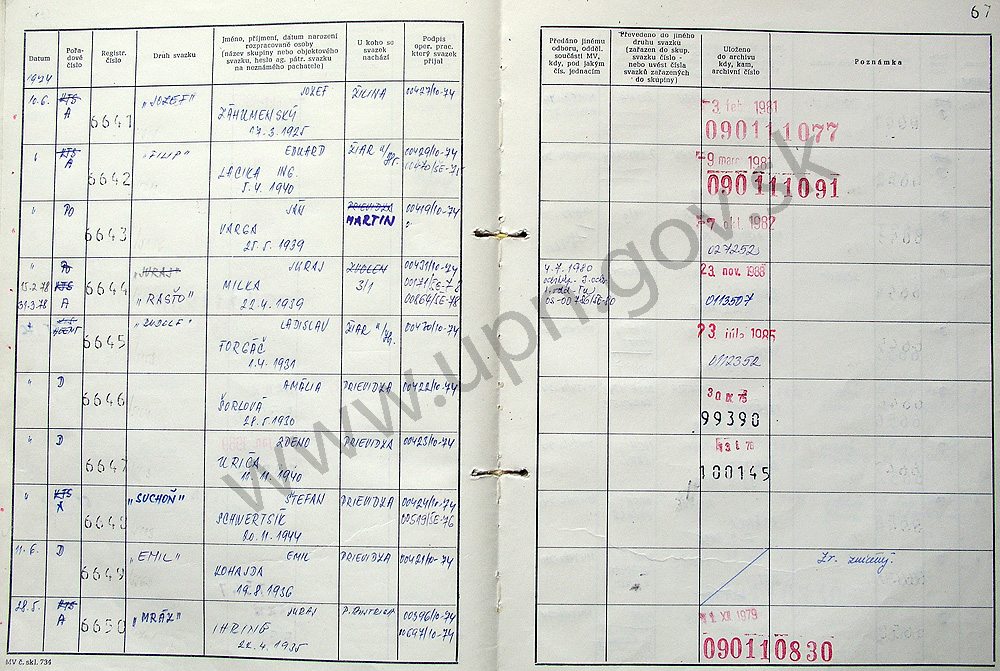 67
Datum
Pořa-
dové
číslo
Registr.
číslo
Druh svazku
Jméno, příjmení, datum narození
rozpracované osoby
(název skupiny nebo objektového
svazku, heslo ag. pátr. svazku
na neznámého pachatele)
U koho se
svazek
nachází
Podpis
oper. prac.
který svazek
přijal
Předáno jinému
odboru, odděl.
součásti MV,
kdy, pod jakým
čís. jednacím
Převedeno do jiného
druhu svazku
(zařazen do skup.
svazku číslo -
nebo uvést čísla
svazků zařazených
do skupiny)
Uloženo
do archivu
kdy, kam,
archivní číslo
Poznámka
1974
10.6. KTS A 6641 „JOZEF" JOZEF ŽILINA 00427/10-74
ZÁHUMENSKÝ
17.3.1925
3 feb 1981
090111077
" KTS A 6642 „FILIP" EDUARD ŽIAR n/ 00429/10-74
LACIKA ING.
5.4.1940
9 marc 1981
090111091
" PO 6643 JÁN PRIEVIDZA 00419/10-74
MARTIN
VARGA
25.5.1939
7 okt. 1982
027252
" PO 6644 „JURAJ" JURAJ ZVOLEN 00431/10-74
15.2.78 KTS „RAŠŤO" MILKA 3/1
31.3.78 A 22.4.1939 00264/SE-78
4.7.1980
23. nov. 1988
0113507
" AGENT 6645 „RUDOLF" LADISLAV ŽIAR n/ 00420/10-74
FORGÁČ
1.4.1931
23. júla 1985
0112352
" D 6646 AMÁLIA PRIEVIDZA 00422/10-74
ŠORLOVÁ
28.5.1930
30 IX 75
99390
" D 6647 ZDENO PRIEVIDZA 00423/10-74
URIČA
11.11.1940
100145
" KTS A 6648 „SUCHOŇ" ŠTEFAN PRIEVIDZA 00424/10-74
SCHWERTSÍK 00519/SE-76
20.11.1944
11.6. D 6649 „EMIL" EMIL PRIEVIDZA 00421/10-74
KOHAJDA
19.8.1936
Zv. zničený.
28.5. KTS A 6650 „MRÁZ" JURAJ P. BYSTRICA 00396/10-74
IHRING 00697/10-74
22.4.1935
XII 1979
090110830
MV č. skl. 734
www.upn.gov.sk